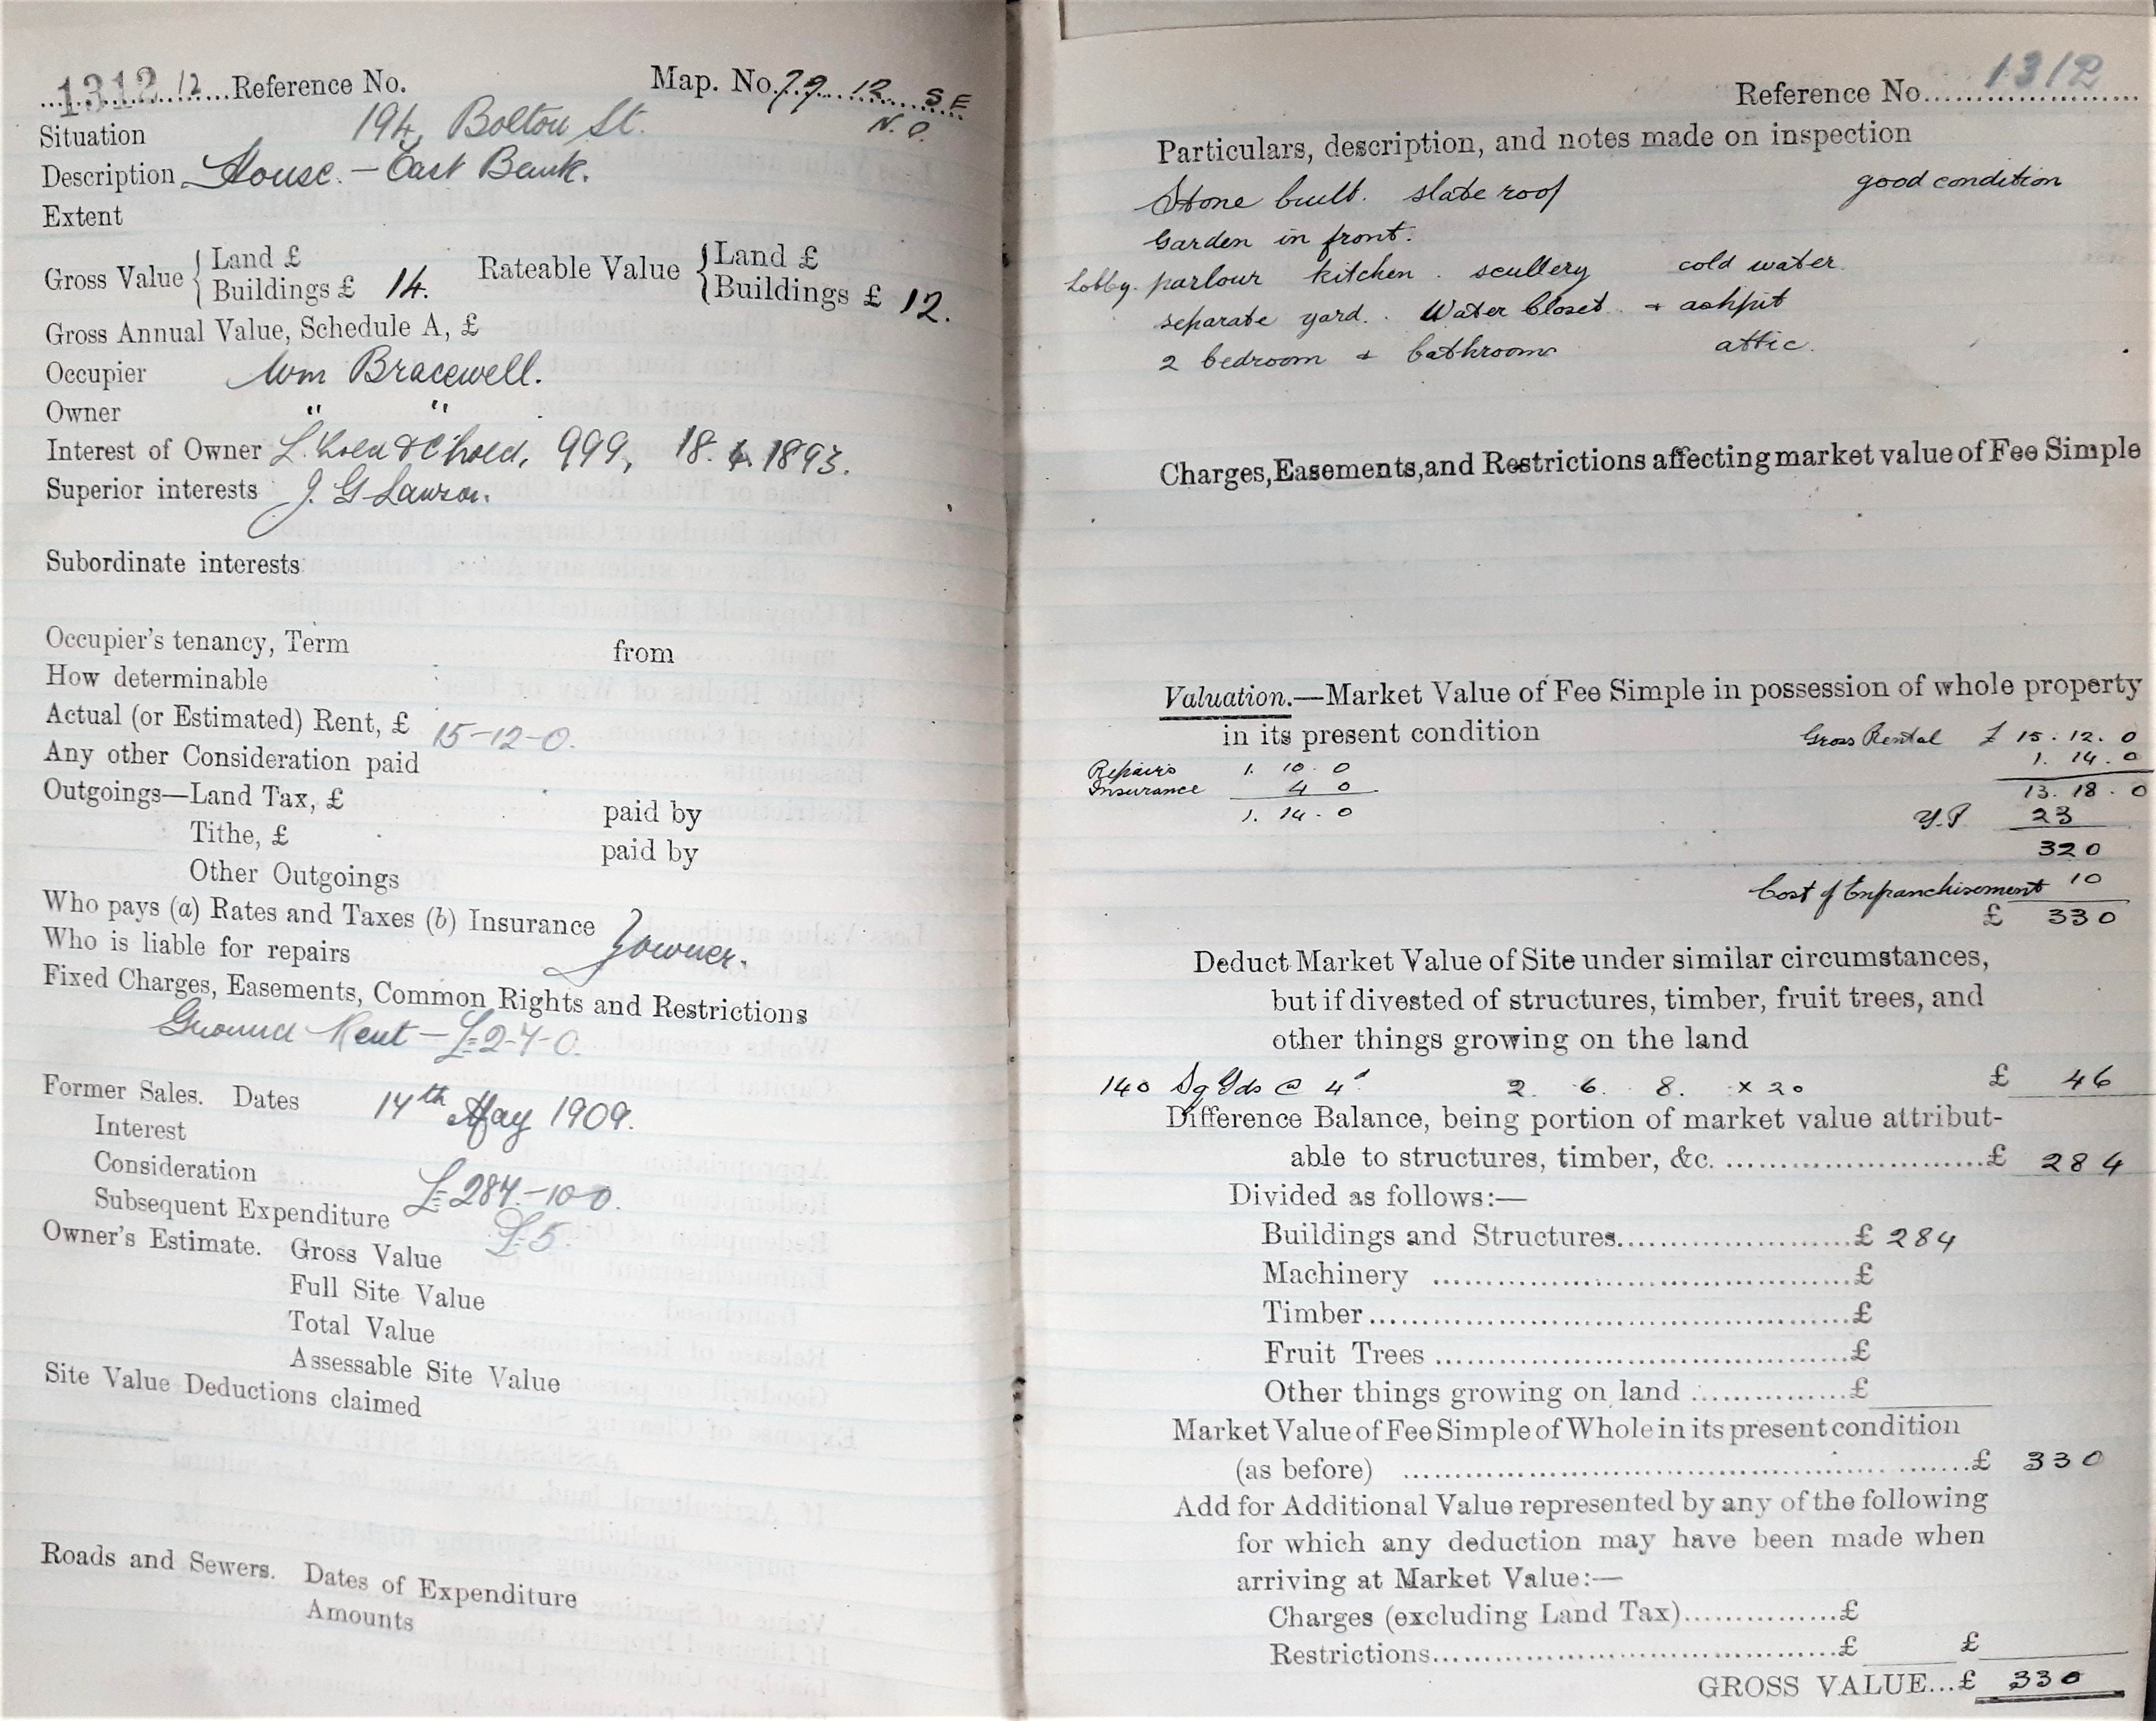 1312 12 Reference No. Map. No. 79. 12 S E
N. P.
Situation 194, Bolton St.
Description House. — East Bank.
Extent
Gross Value { Land £ Rateable Value { Land £
Buildings £ 14. Buildings £ 12.
Gross Annual Value, Schedule A, £
Occupier Wm Bracewell.
Owner " "
Interest of Owner L. hold & C'hold, 999, 18. 4. 1893.
Superior interests J. G. Lawson.
Subordinate interests
Occupier's tenancy, Term from
How determinable
Actual (or Estimated) Rent, £ 15-12-0.
Any other Consideration paid
Outgoings—Land Tax, £ paid by
Tithe, £ paid by
Other Outgoings
Who pays (a) Rates and Taxes (b) Insurance } owner.
Who is liable for repairs
Fixed Charges, Easements, Common Rights and Restrictions
Ground Rent — £2-4-0.
Former Sales. Dates 14th May 1909.
Interest
Consideration £284.-10-0.
Subsequent Expenditure £5.
Owner's Estimate. Gross Value
Full Site Value
Total Value
Assessable Site Value
Site Value Deductions claimed
Roads and Sewers. Dates of Expenditure
Amounts
Reference No. 1312
Particulars, description, and notes made on inspection
Stone built. slate roof good condition
Garden in front.
Lobby. parlour kitchen. scullery cold water.
separate yard. Water Closet. + ashpit
2 bedroom + bathroom attic.
Charges, Easements, and Restrictions affecting market value of Fee Simple
Valuation.—Market Value of Fee Simple in possession of whole property
in its present condition Gross Rental £ 15. 12. 0
Repairs 1. 10. 0 1. 14. 0
Insurance 4 0 13. 18. 0
1. 14. 0 Y.P 23
320
Cost of Enfranchisement 10
£ 330
Deduct Market Value of Site under similar circumstances,
but if divested of structures, timber, fruit trees, and
other things growing on the land
140 Sq Yds @ 4d 2. 6. 8. x 20 £ 46
Difference Balance, being portion of market value attribut-
able to structures, timber, &c. £ 284
Divided as follows:—
Buildings and Structures £ 284
Machinery £
Timber £
Fruit Trees £
Other things growing on land £
Market Value of Fee Simple of Whole in its present condition
(as before) £ 330
Add for Additional Value represented by any of the following
for which any deduction may have been made when
arriving at Market Value:—
Charges (excluding Land Tax) £
Restrictions £ £
GROSS VALUE... £ 330